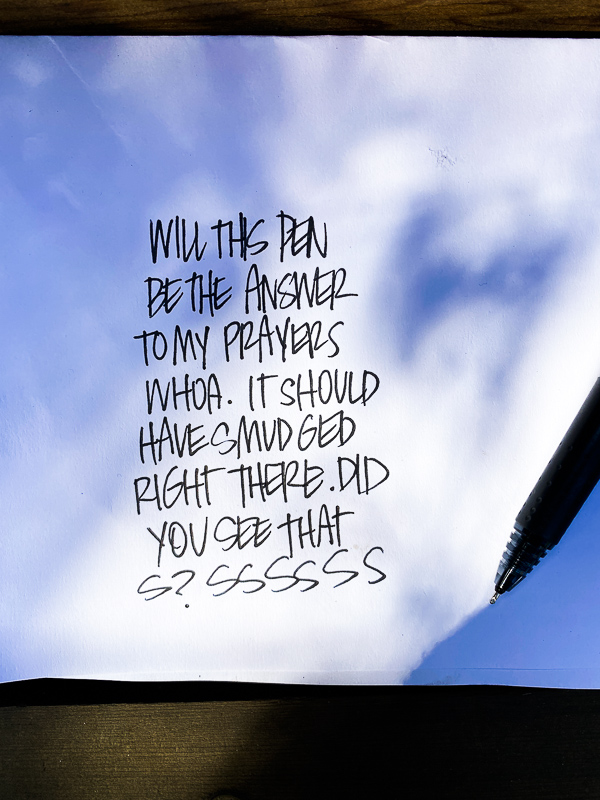 WILL THIS PEN
BE THE ANSWER
TO MY PRAYERS
WHOA. IT SHOULD
HAVE SMUDGED
RIGHT THERE. DID
YOU SEE THAT
S? SSSSSS